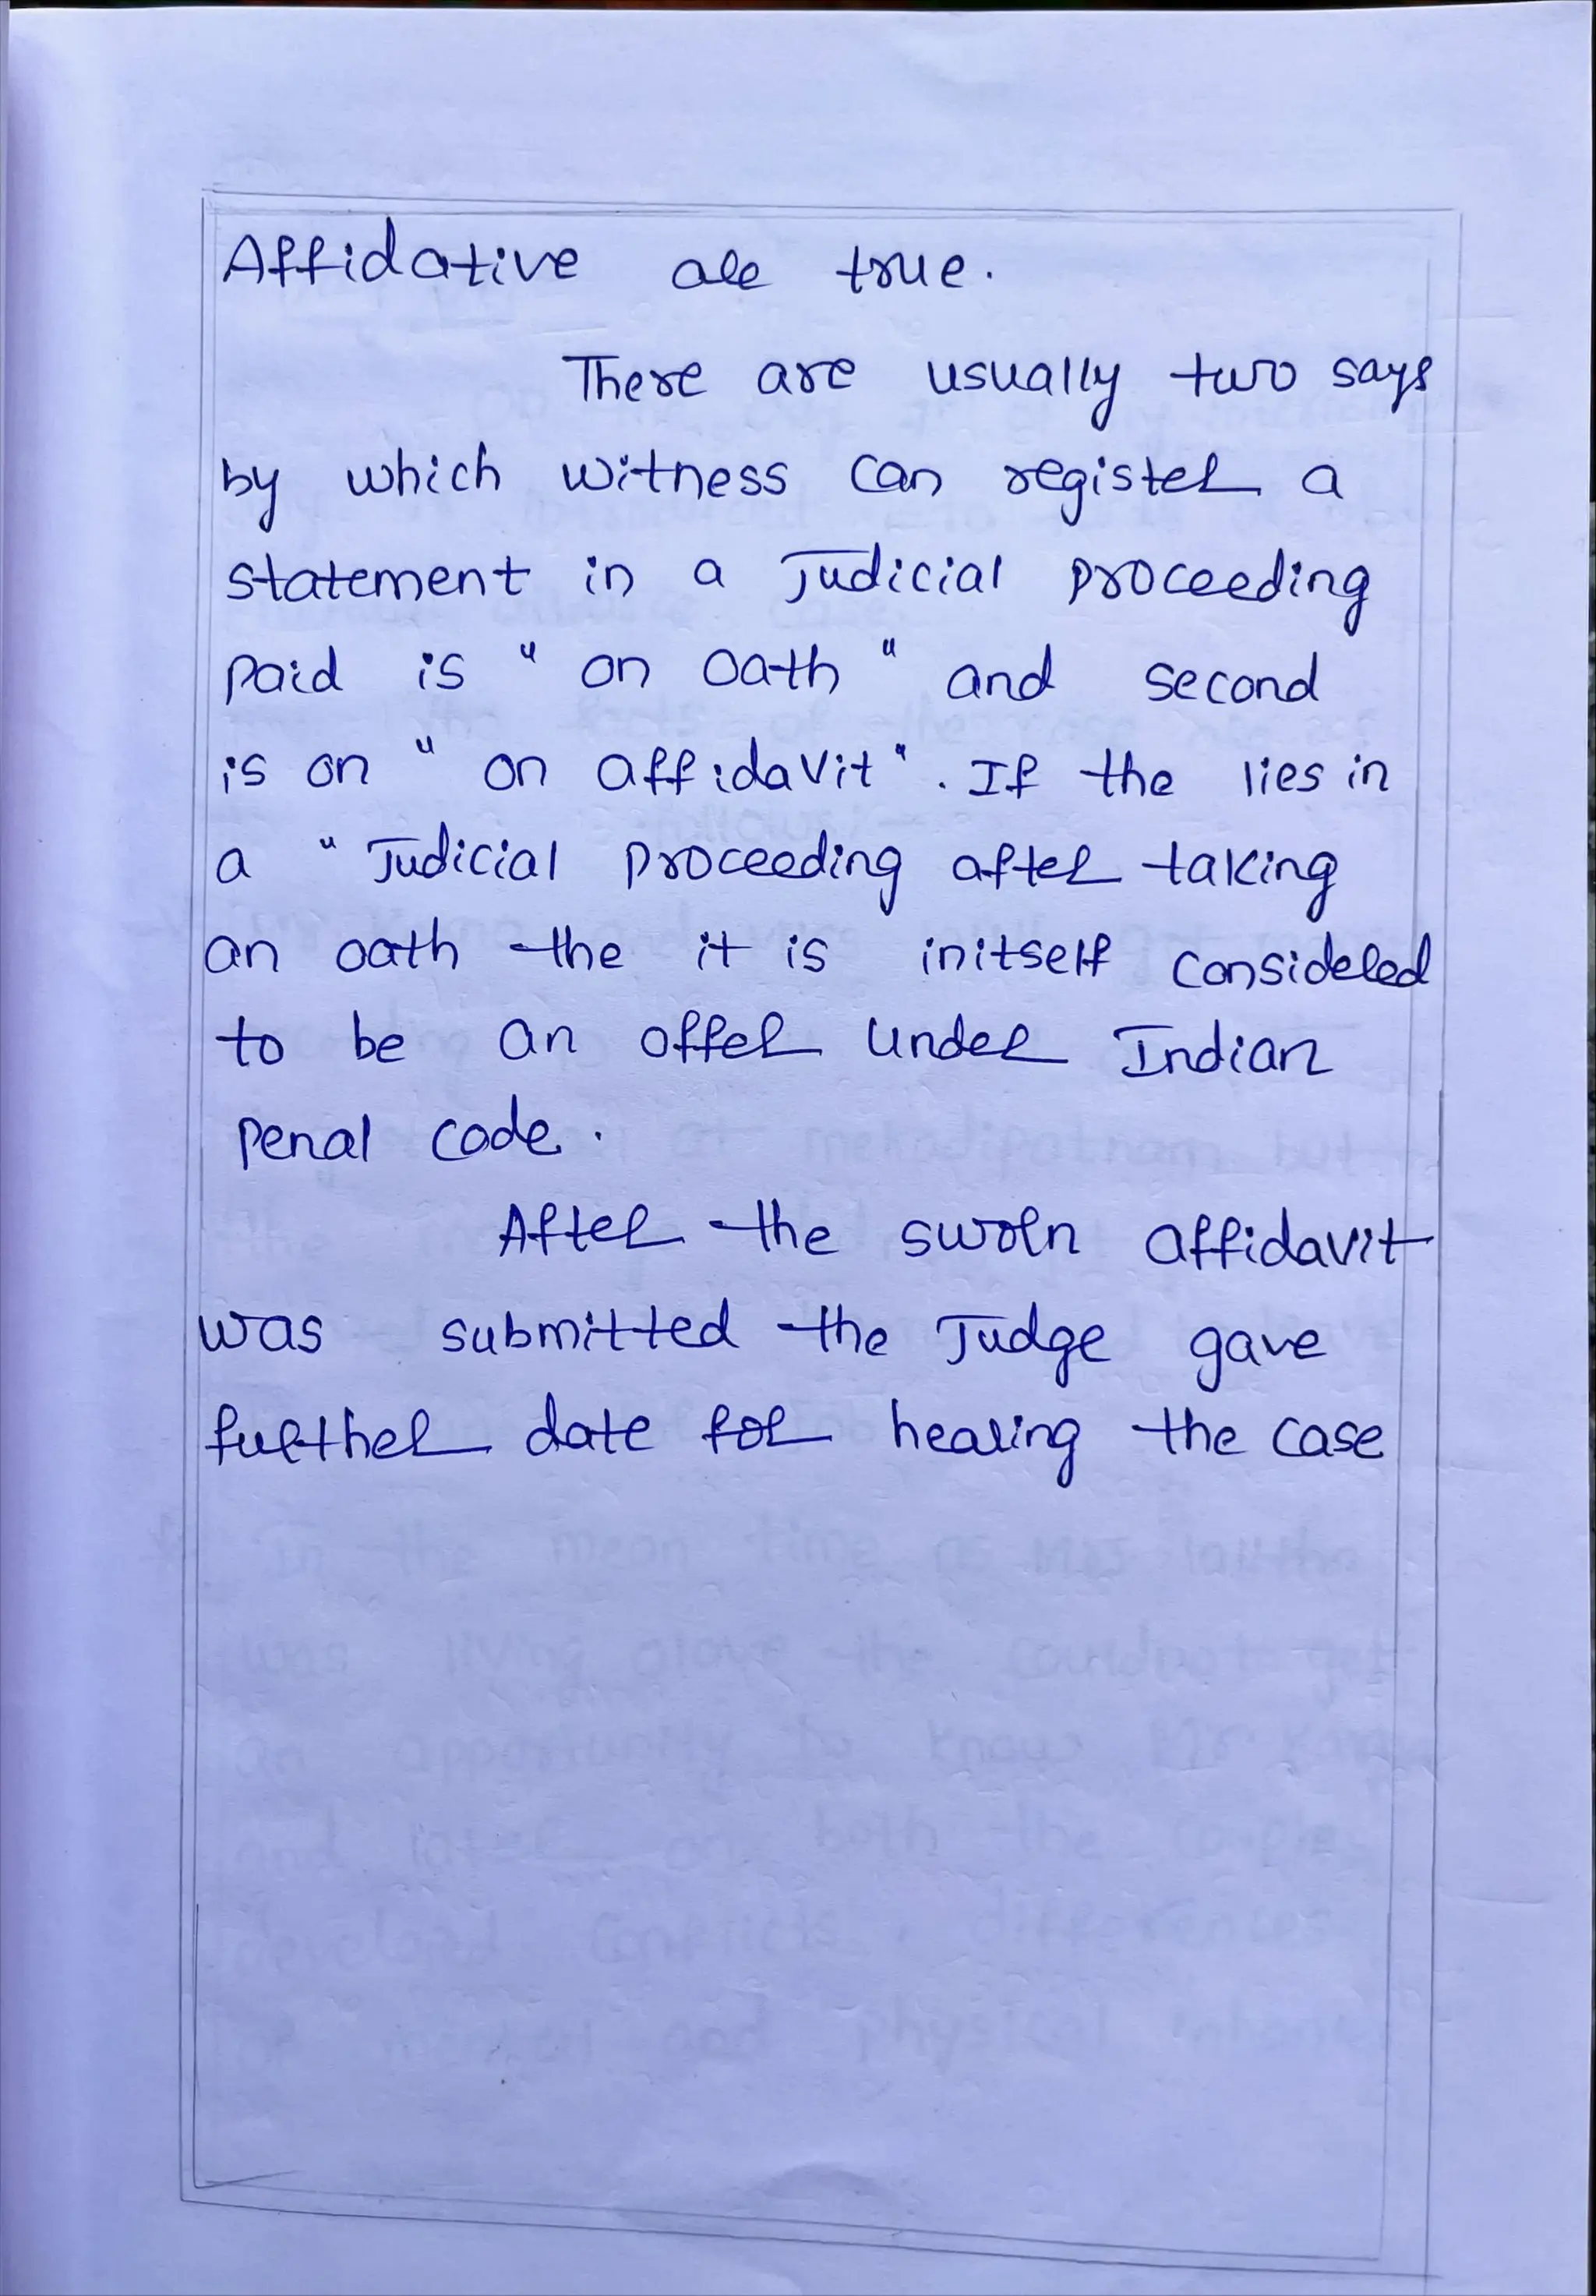 Affidative are true.
There are usually two says
by which witness can register a
statement in a Judicial proceeding
paid is " on oath " and second
is on " on affidavit". If the lies in
a " Judicial proceeding after taking
an oath the it is initself considered
to be an offer under Indian
penal code.
After the sworn affidavit
was submitted the Judge gave
further date for hearing the case